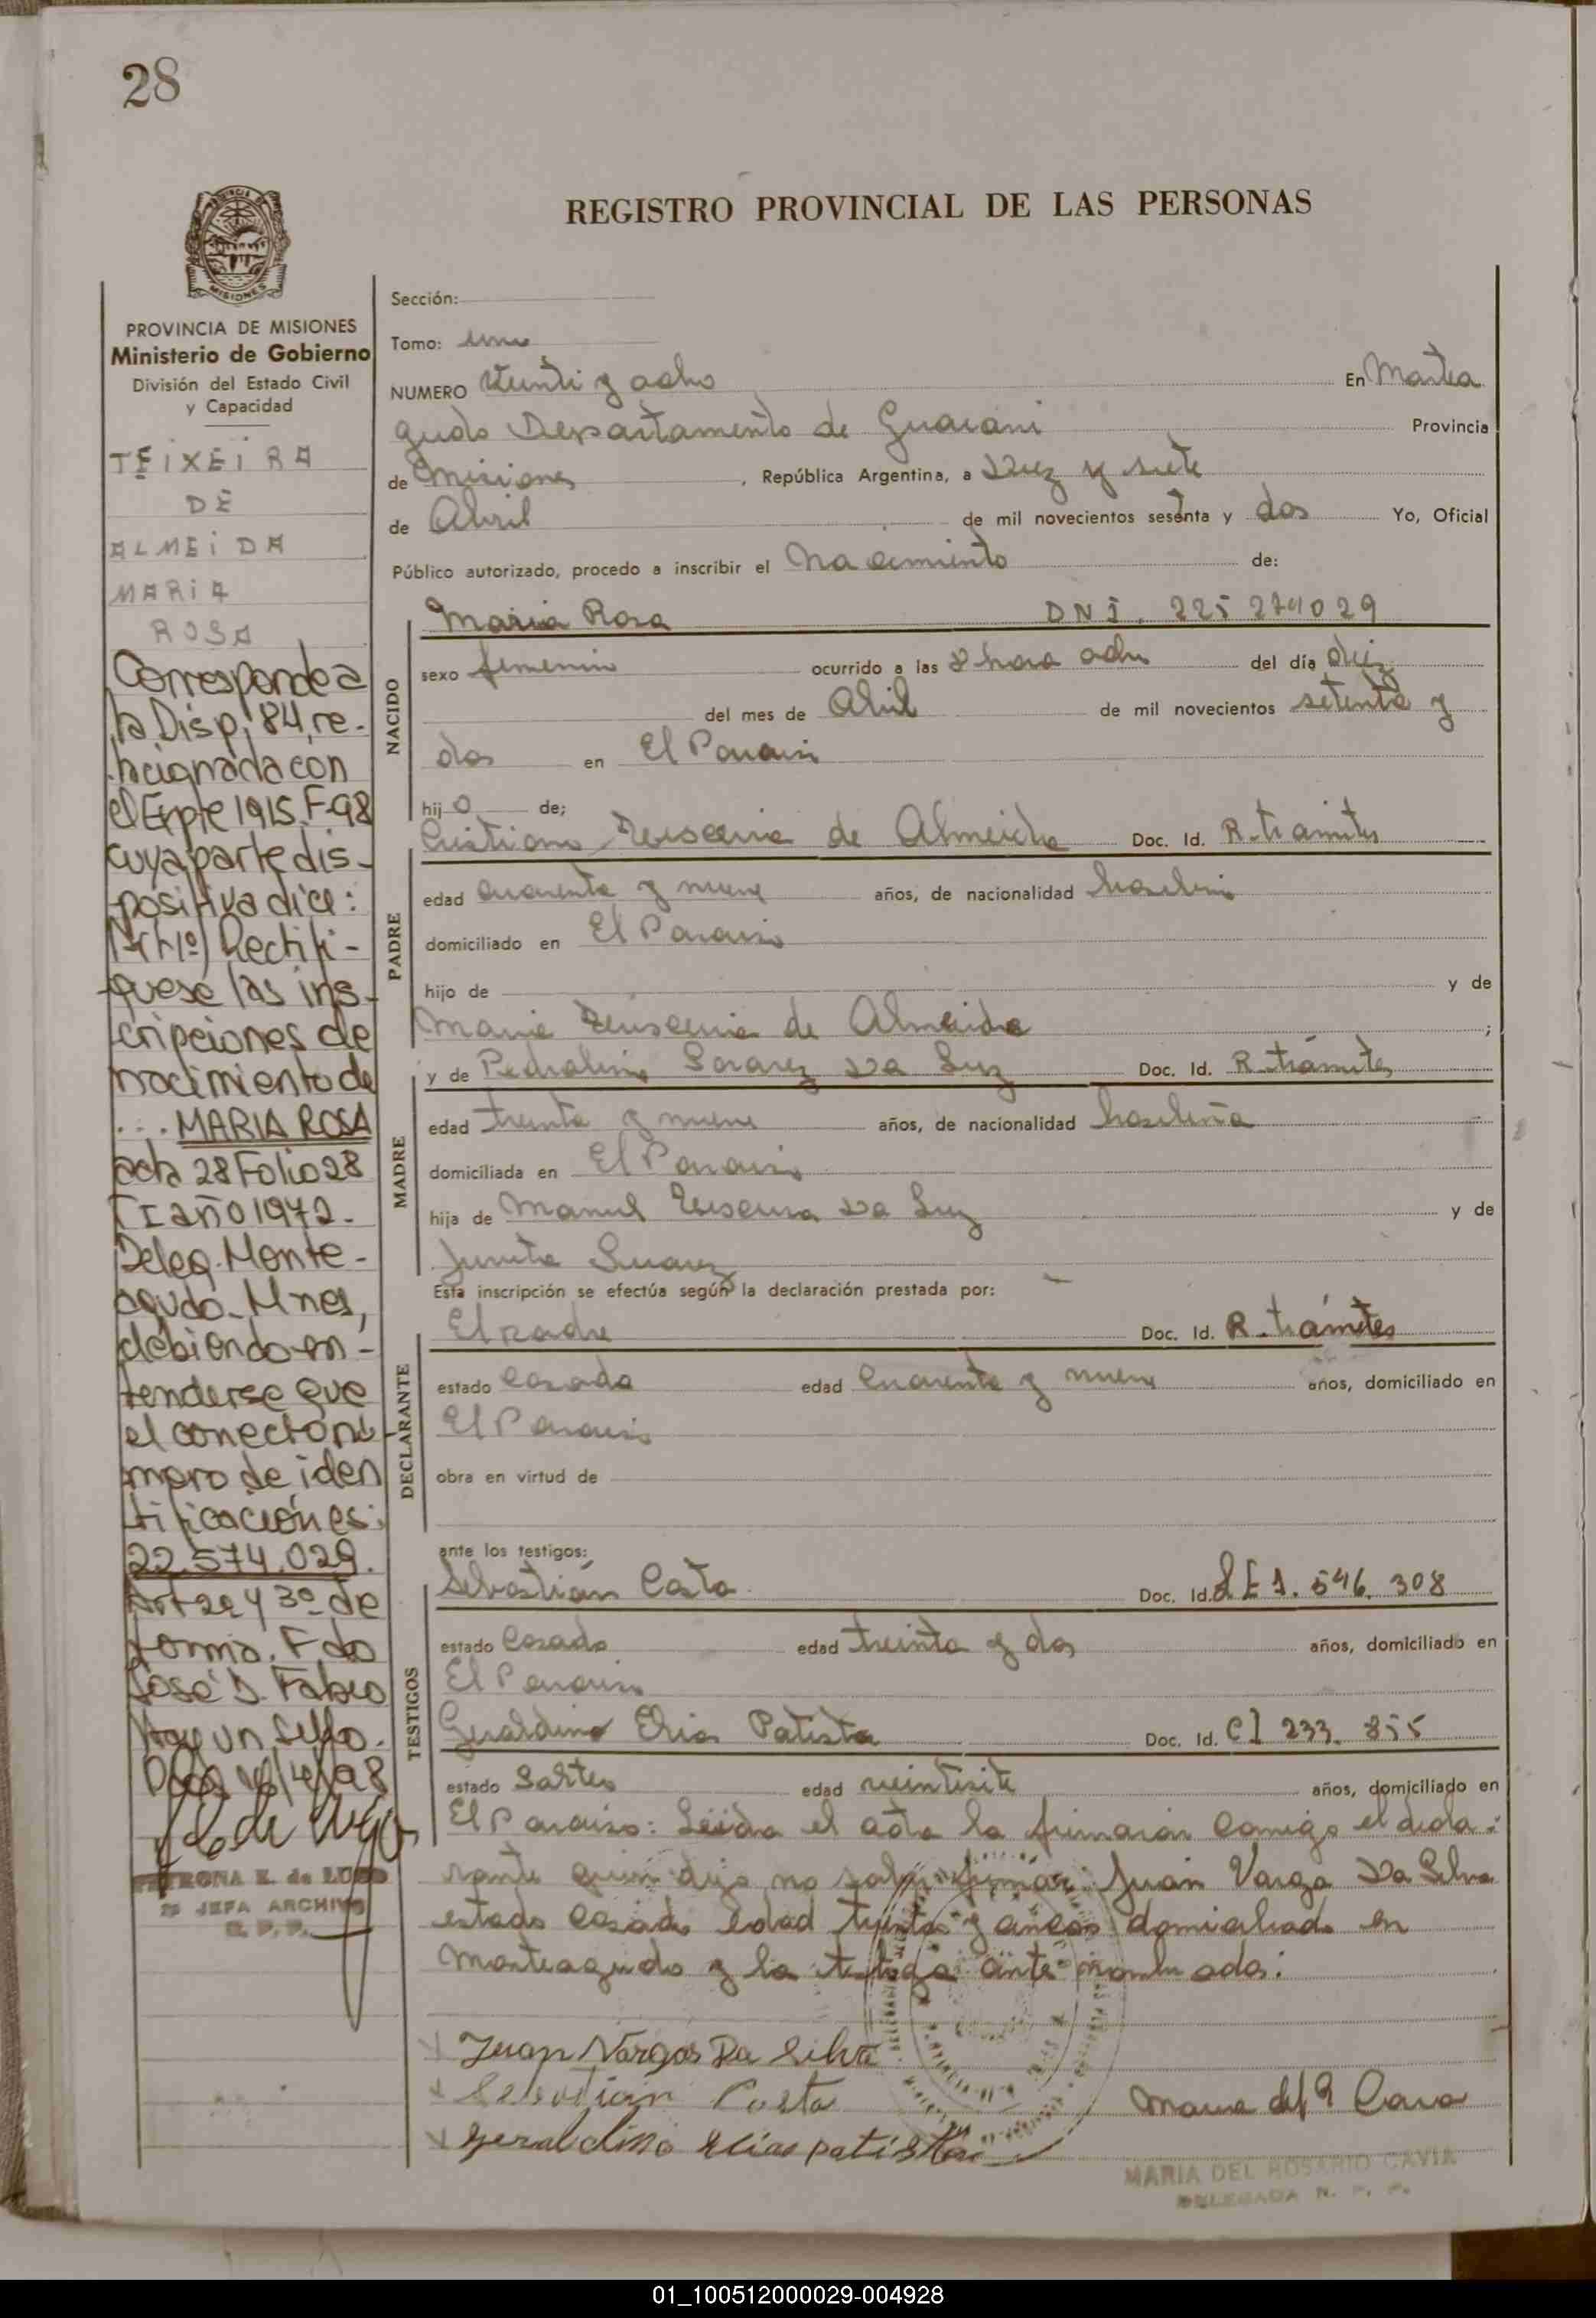 28
REGISTRO PROVINCIAL DE LAS PERSONAS
MISIONES
PROVINCIA DE MISIONES
Ministerio de Gobierno
División del Estado Civil
y Capacidad
TEIXEIRA
DE
ALMEIDA
MARIA
ROSA
Corresponde a
la Disp. 84, re-
lacionada con
el Expte 1915. F-98
cuya parte dis-
positiva dice:
Art 1º) Rectifi-
quese las ins-
cripciones de
nacimiento de
... MARIA ROSA
acta 28 Folio 28
TI año 1972.
Deleg. Monte-
agudo. Mnes,
debiendo en-
tenderse que
el correcto nú-
mero de iden
tificación es:
22.574.029.
Art 2º y 3º de
forma. Fdo
José D. Fabio
Hay un sello.
JEFA ARCHIVO
R. P. P.
Sección:
Tomo: uno
NUMERO Veinti y ocho En Montea
gudo Departamento de Guarani Provincia
de Misiones, República Argentina, a Diez y siete
de Abril de mil novecientos sesenta y dos Yo, Oficial
Público autorizado, procedo a inscribir el Nacimiento de:
NACIDO
Maria Rosa DNI.
sexo femenino ocurrido a las 8 hora ocho del día diez
del mes de Abril de mil novecientos setenta y
dos en El Paraiso
hijo de;
PADRE
Cristiano de Almeida Doc. Id. R. tramites
edad cuarenta y nueve años, de nacionalidad brasilera
domiciliado en El Paraiso
hijo de y de
Maria de Almeida;
MADRE
y de Soarez Da Luz Doc. Id. R. trámites
edad treinta y nueve años, de nacionalidad brasileña
domiciliada en El Paraiso
hija de Manuel Da Luz y de
Suarez
Esta inscripción se efectúa según la declaración prestada por:
DECLARANTE
El padre Doc. Id. R. trámites
estado casado edad cuarenta y nueve años, domiciliado en
El Paraiso
obra en virtud de
ante los testigos:
TESTIGOS
Sebastián Costa Doc. Id. LE 1.546.308
estado casado edad treinta y dos años, domiciliado en
El Paraiso
Geraldino Elias Patista Doc. Id. CI 233.855
estado Soltero edad veintisite años, domiciliado en
El Paraiso: Leida el acta la firmaron comigo el decla-
rante quien dijo no saber firmar Juan Varga Da Silva
estado casado edad treinta y cinco domiciliado en
Monteagudo y los testigos ante nombrados:
Juan Vargas Da Silva
Sebastian Costa
Geraldino Elias patista
Maria del R Cavia
MARIA DEL ROSARIO CAVIA
DELEGADA R. P. P.
01_100512000029-004928